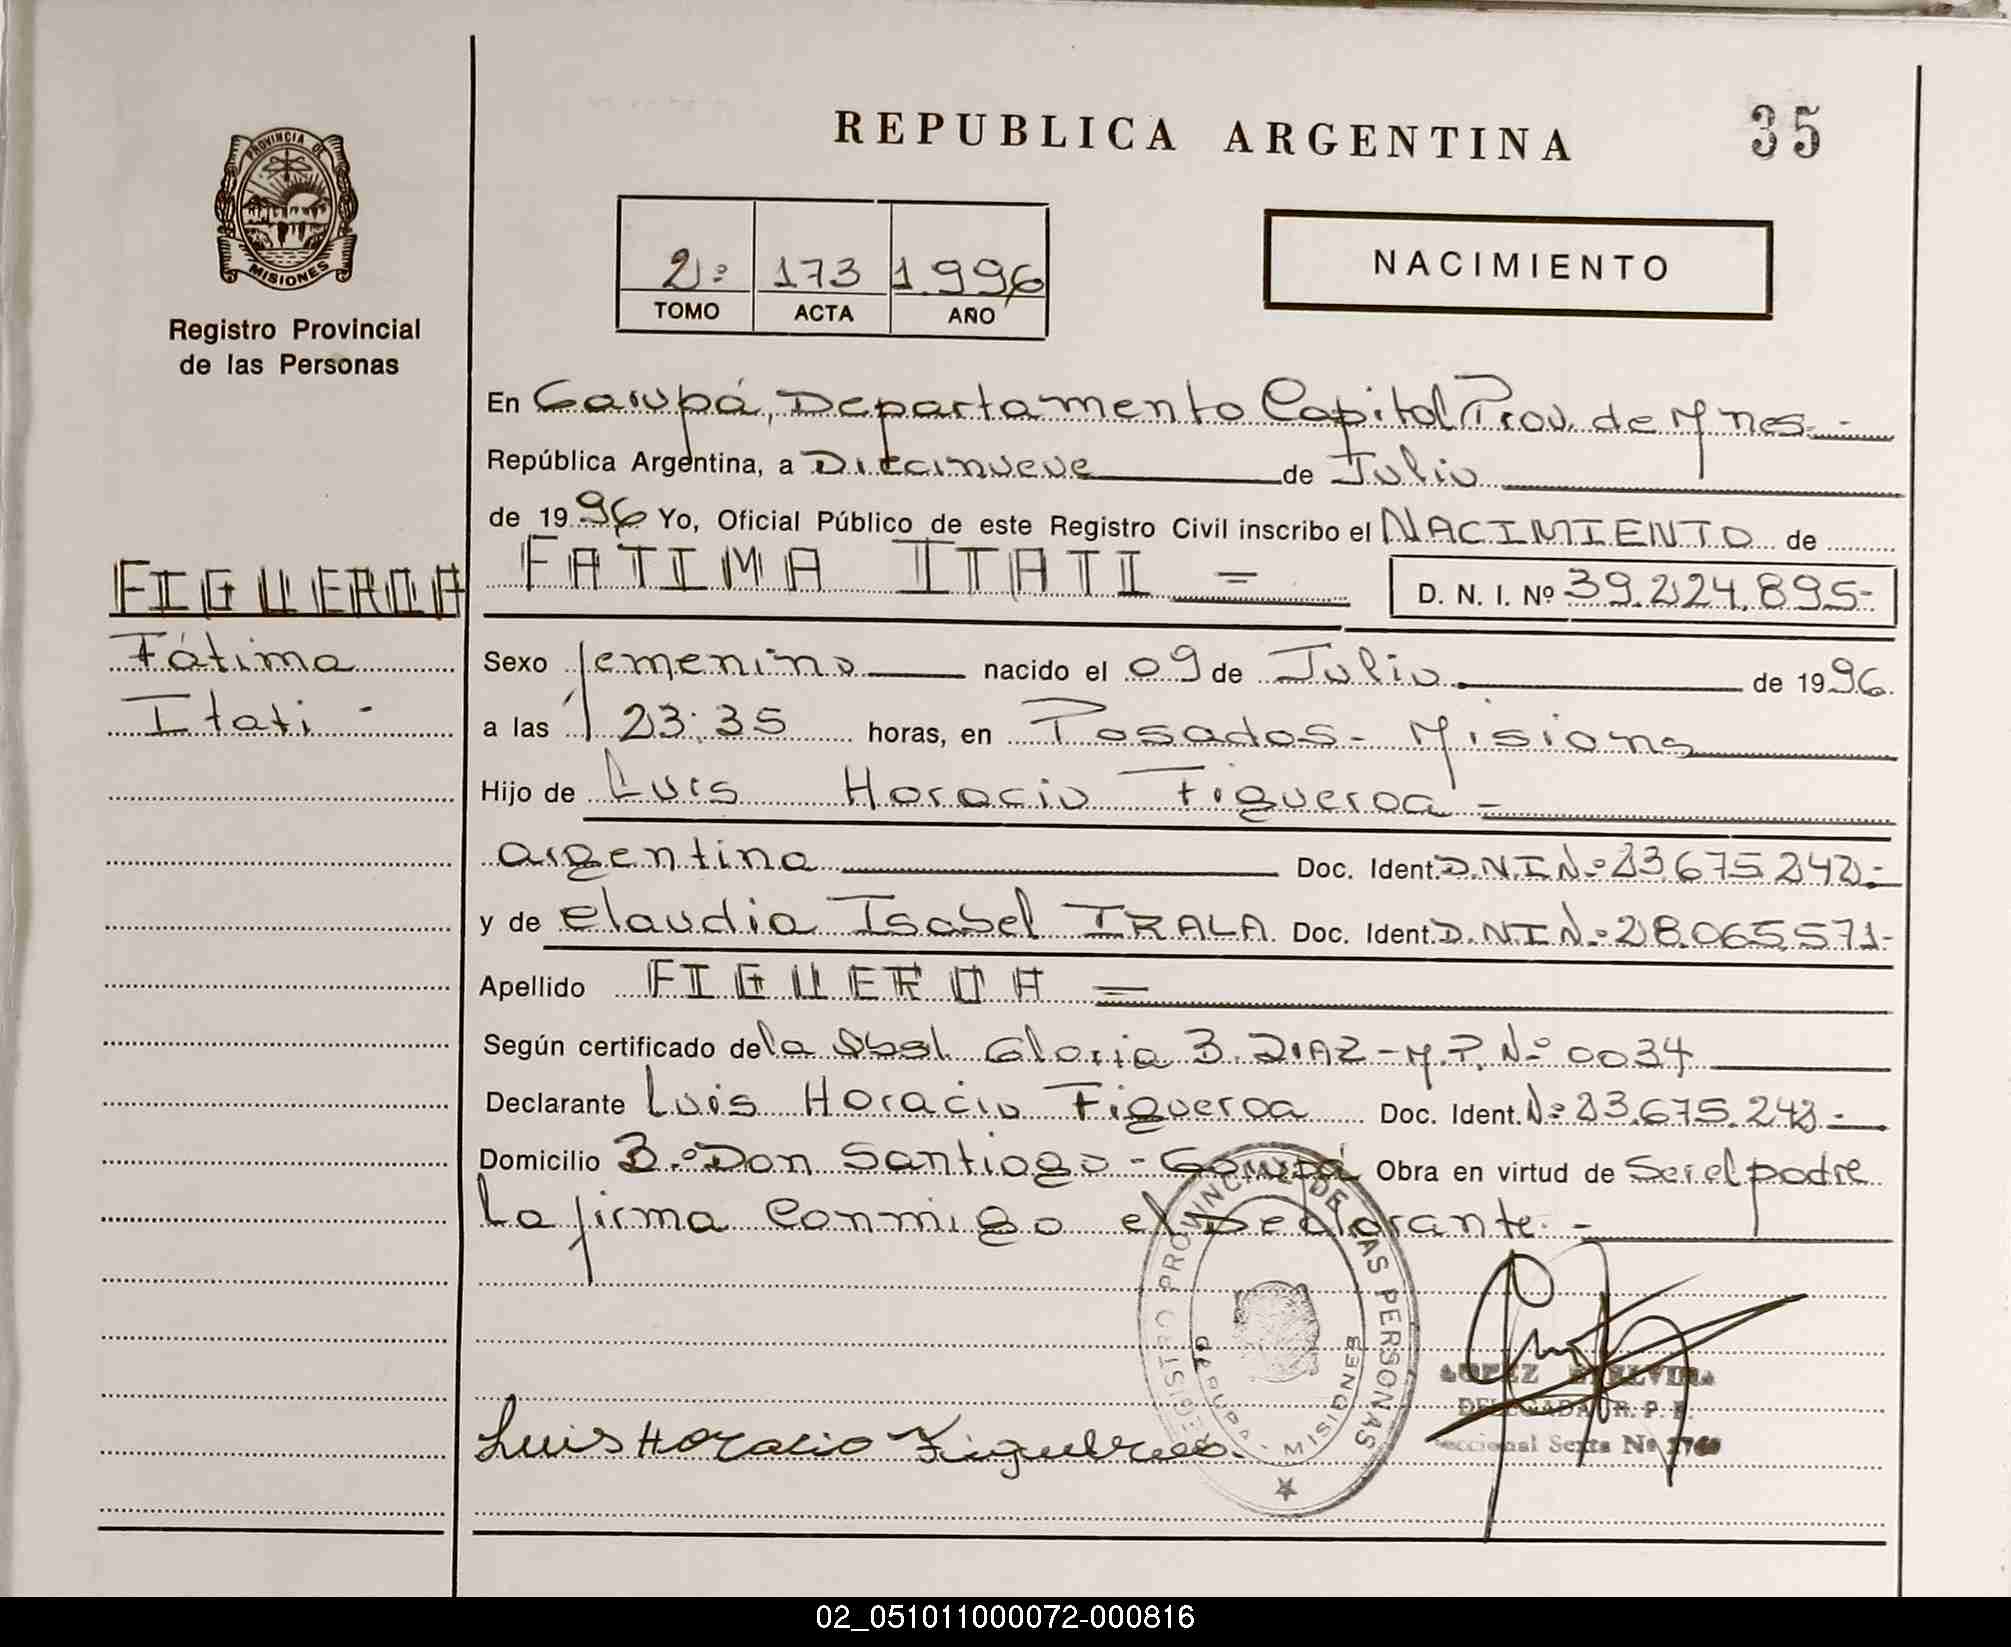 PROVINCIA DE
MISIONES
Registro Provincial
de las Personas
REPUBLICA ARGENTINA
35
2º 173 1.996
TOMO ACTA AÑO
NACIMIENTO
En Garupá, Departamento Capital Prov. de Mnes.-
República Argentina, a Diecinueve de Julio
de 1996 Yo, Oficial Público de este Registro Civil inscribo el NACIMIENTO de
FATIMA ITATI =
D. N. I. Nº 39.224.895-
FIGUEROA
Fátima
Itati -
Sexo femenino nacido el 09 de Julio de 1996.
a las 23:35 horas, en Posadas - Misiones
Hijo de Luis Horacio Figueroa =
argentina Doc. Ident. D.N.I Nº 23.675.242.-
y de Claudia Isabel IRALA Doc. Ident. D.N.I Nº 28.065.571-
Apellido FIGUEROA =
Según certificado de la Obst. Gloria B. DIAZ - M.P. Nº 0034
Declarante Luis Horacio Figueroa Doc. Ident. Nº 23.675.242.-
Domicilio Bº Don Santiago - Garupá Obra en virtud de Ser el padre
La firma Conmigo el Declarante.-
REGISTRO PROVINCIAL DE LAS PERSONAS
GARUPA - MISIONES
Luis Horacio Figueroa.
LOPEZ
DELEGADA R. P. P.
Seccional Sexta Nº
02_051011000072-000816